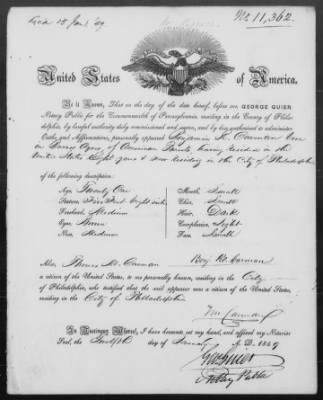 No 11,362.
United States of America.
Be it Known, That on the day of the date hereof, before me, GEORGE QUIER,
Notary Public for the Commonwealth of Pennsylvania, residing in the County of Philadelphia,
by lawful authority duly commissioned and sworn, and by law authorized to administer
Oaths and Affirmations, personally appeared Benjamin K. Carman
of American Parents, having resided in the
United States Eight years & now residing in the City of Philadelphia
of the following description:
Age, Twenty One
Mouth, Small
Stature, Five Feet Eight
Chin, Small
Forehead, Medium
Hair, Dark
Eyes, Brown
Complexion, Light
Nose, Medium
Face, Small
Also, Thomas M. Carman
Benj K. Carman
a citizen of the United States, to me personally known, residing in the City
of Philadelphia, who testified that the said appearer was a citizen of the United States,
residing in the City of Philadelphia
T M Carman
In Testimony Whereof, I have hereunto set my hand, and affixed my Notarial
Seal, the Twelfth day of January A. D. 1849
Geo Quier
Notary Public